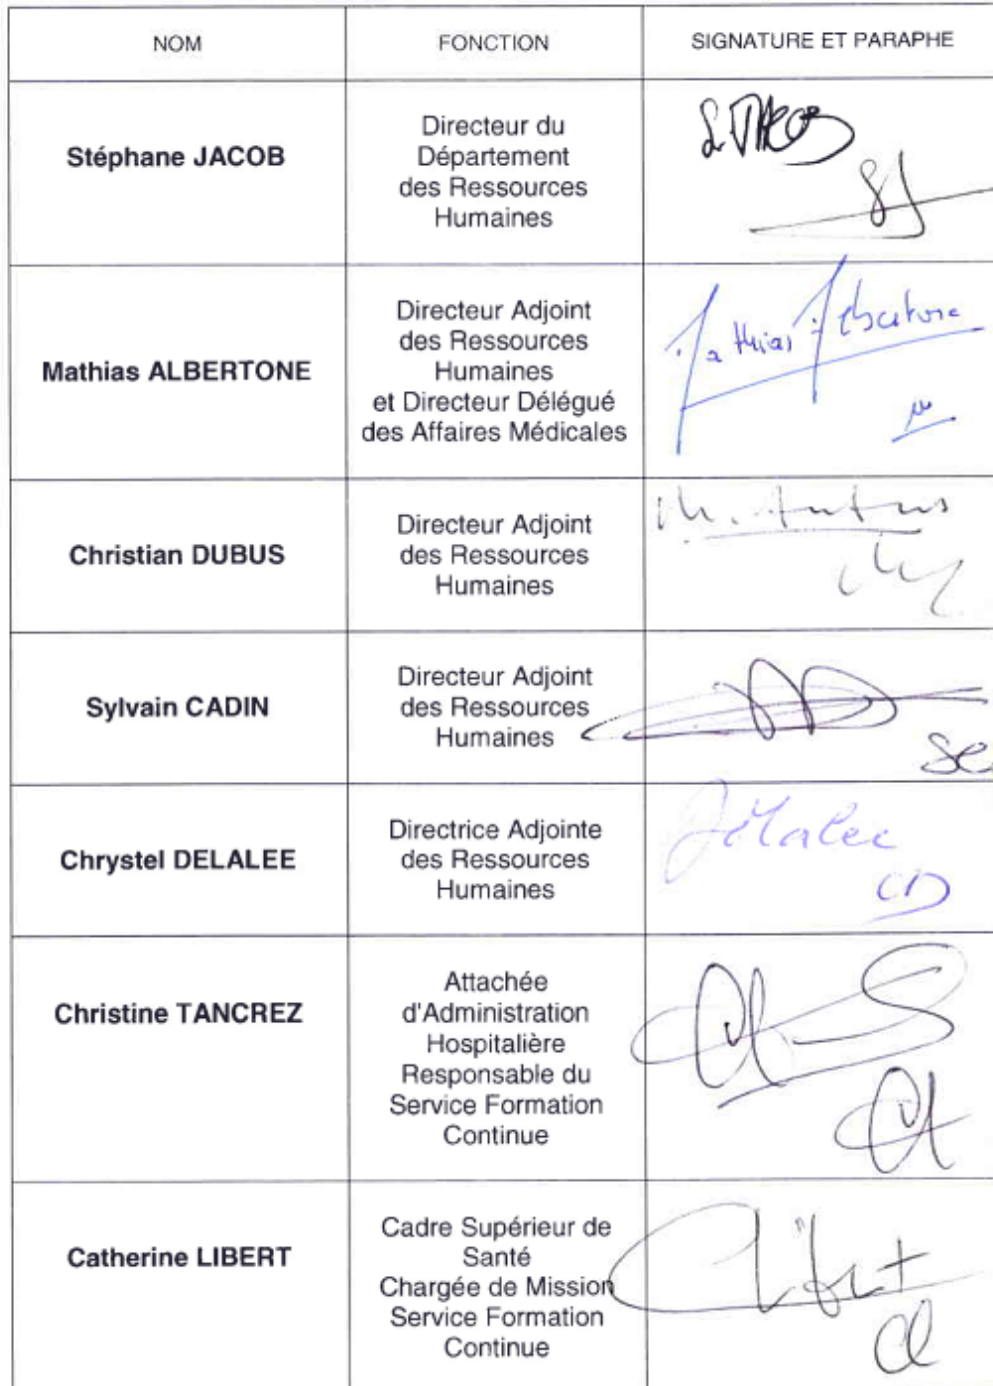 NOM FONCTION SIGNATURE ET PARAPHE
Stéphane JACOB
Directeur du
Département
des Ressources
Humaines
S. JACOB
SJ
Mathias ALBERTONE
Directeur Adjoint
des Ressources
Humaines
et Directeur Délégué
des Affaires Médicales
Mathias Albertone
Christian DUBUS
Directeur Adjoint
des Ressources
Humaines
Sylvain CADIN
Directeur Adjoint
des Ressources
Humaines
SC
Chrystel DELALEE
Directrice Adjointe
des Ressources
Humaines
CD
Christine TANCREZ
Attachée
d'Administration
Hospitalière
Responsable du
Service Formation
Continue
Catherine LIBERT
Cadre Supérieur de
Santé
Chargée de Mission
Service Formation
Continue
CL